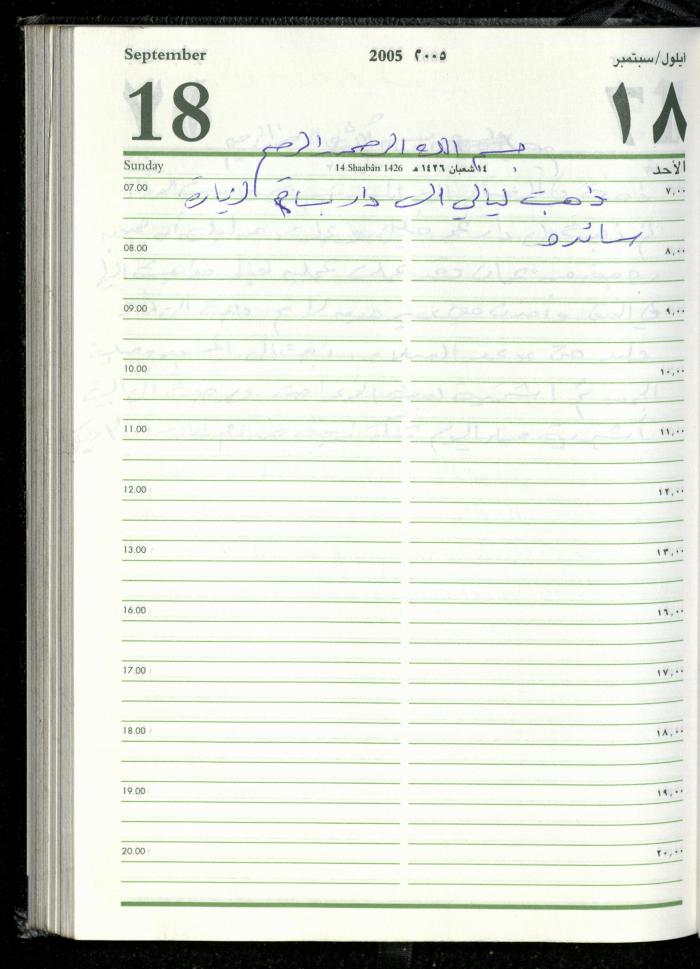 September 2005 ٢٠٠٥ ايلول/سبتمبر
18 ١٨
بسم الله الرحمن الرحيم
Sunday 14 Shaabân 1426 ١٤ شعبان ١٤٢٦ هـ الأحد
07.00 ٧,٠٠
ذهبت ليالي الى دار بسام لزيارة
سائده
08.00 ٨,٠٠
09.00 ٩,٠٠
10.00 ١٠,٠٠
11.00 ١١,٠٠
12.00 ١٢,٠٠
13.00 ١٣,٠٠
16.00 ١٦,٠٠
17.00 ١٧,٠٠
18.00 ١٨,٠٠
19.00 ١٩,٠٠
20.00 ٢٠,٠٠